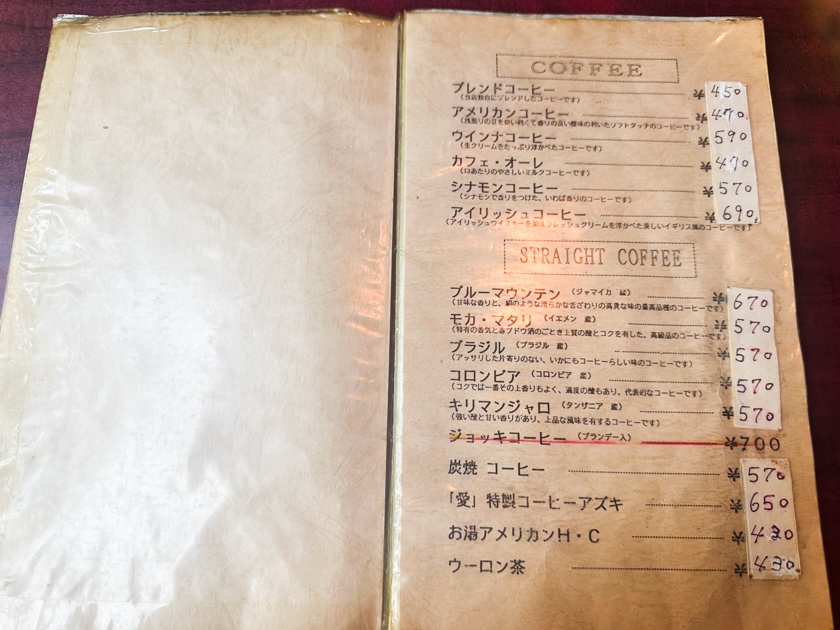 COFFEE
ブレンドコーヒー ¥450
(当店独自にブレンドしたコーヒーです)
アメリカンコーヒー ¥470
ウインナコーヒー ¥590
(生クリームをたっぷり浮かべたコーヒーです)
カフェ・オーレ ¥470
(口あたりのやさしいミルクコーヒーです)
シナモンコーヒー ¥570
(シナモンで香りをつけた、いわば香りのコーヒーです)
アイリッシュコーヒー ¥690
(アイリッシュウイスキーを加えフレッシュクリームを浮かべた楽しいイギリス風のコーヒーです)
STRAIGHT COFFEE
ブルーマウンテン (ジャマイカ 産) ¥670
(甘味な香りと、絹のような滑らかな舌ざわりの高貴な味の最高品種のコーヒーです)
モカ・マタリ (イエメン 産) ¥570
(特有の香気と赤ブドウ酒のごとき上質の酸とコクを有した、高級品のコーヒーです)
ブラジル (ブラジル 産) ¥570
(アッサリした片寄りのない、いかにもコーヒーらしい味のコーヒーです)
コロンビア (コロンビア 産) ¥570
(コクでは一番その上香りもよく、適度の酸もあり、代表的なコーヒーです)
キリマンジャロ (タンザニア 産) ¥570
(強い酸と甘い香りがあり、上品な風味を有するコーヒーです)
ジョッキコーヒー (ブランデー入) ¥700
炭焼 コーヒー ¥570
「愛」特製コーヒーアズキ ¥650
お湯アメリカンH・C ¥430
ウーロン茶 ¥430